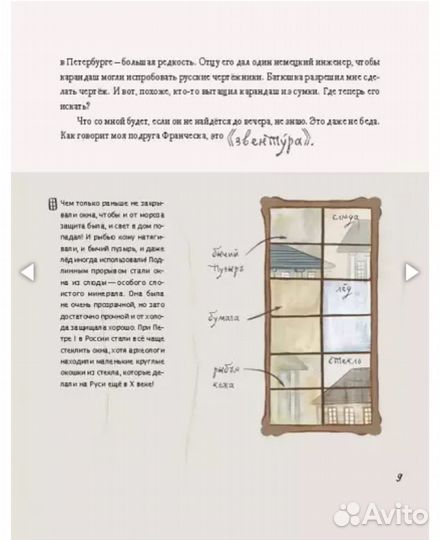 в Петербурге — большая редкость. Отцу его дал один немецкий инженер, чтобы
карандаш могли испробовать русские чертёжники. Батюшка разрешил мне сде-
лать чертёж. И вот, похоже, кто-то вытащил карандаш из сумки. Где теперь его
искать?
Что со мной будет, если он не найдётся до вечера, не знаю. Это даже не беда.
Как говорит моя подруга Франческа, это «звентýра».
Чем только раньше не закры-
вали окна, чтобы и от мороза
защита была, и свет в дом по-
падал! И рыбью кожу натяги-
вали, и бычий пузырь, и даже
лёд иногда использовали Под-
линным прорывом стали ок-
на из слюды — особого сло-
истого минерала. Она была
не очень прозрачной, но зато
достаточно прочной и от холо-
да защищала хорошо. При Пе-
тре I в России стали всё чаще
стеклить окна, хотя археологи
находили маленькие круглые
окошки из стекла, которые де-
лали на Руси ещё в X веке!
слюда
бычий
пузырь
лёд
бумага
стекло
рыбья
кожа
9
Avito